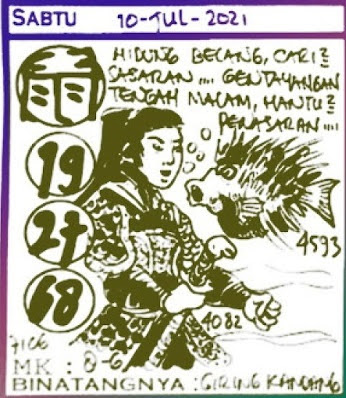 SABTU 10-JUL-2021
HIDUNG BELANG, CARI2
SASARAN .... GENTAYANGAN
TENGAH MALAM, HANTU2
PENASARAN ....
19
27
68
4593
4082
7106
MK : 0-6
BINATANGNYA :